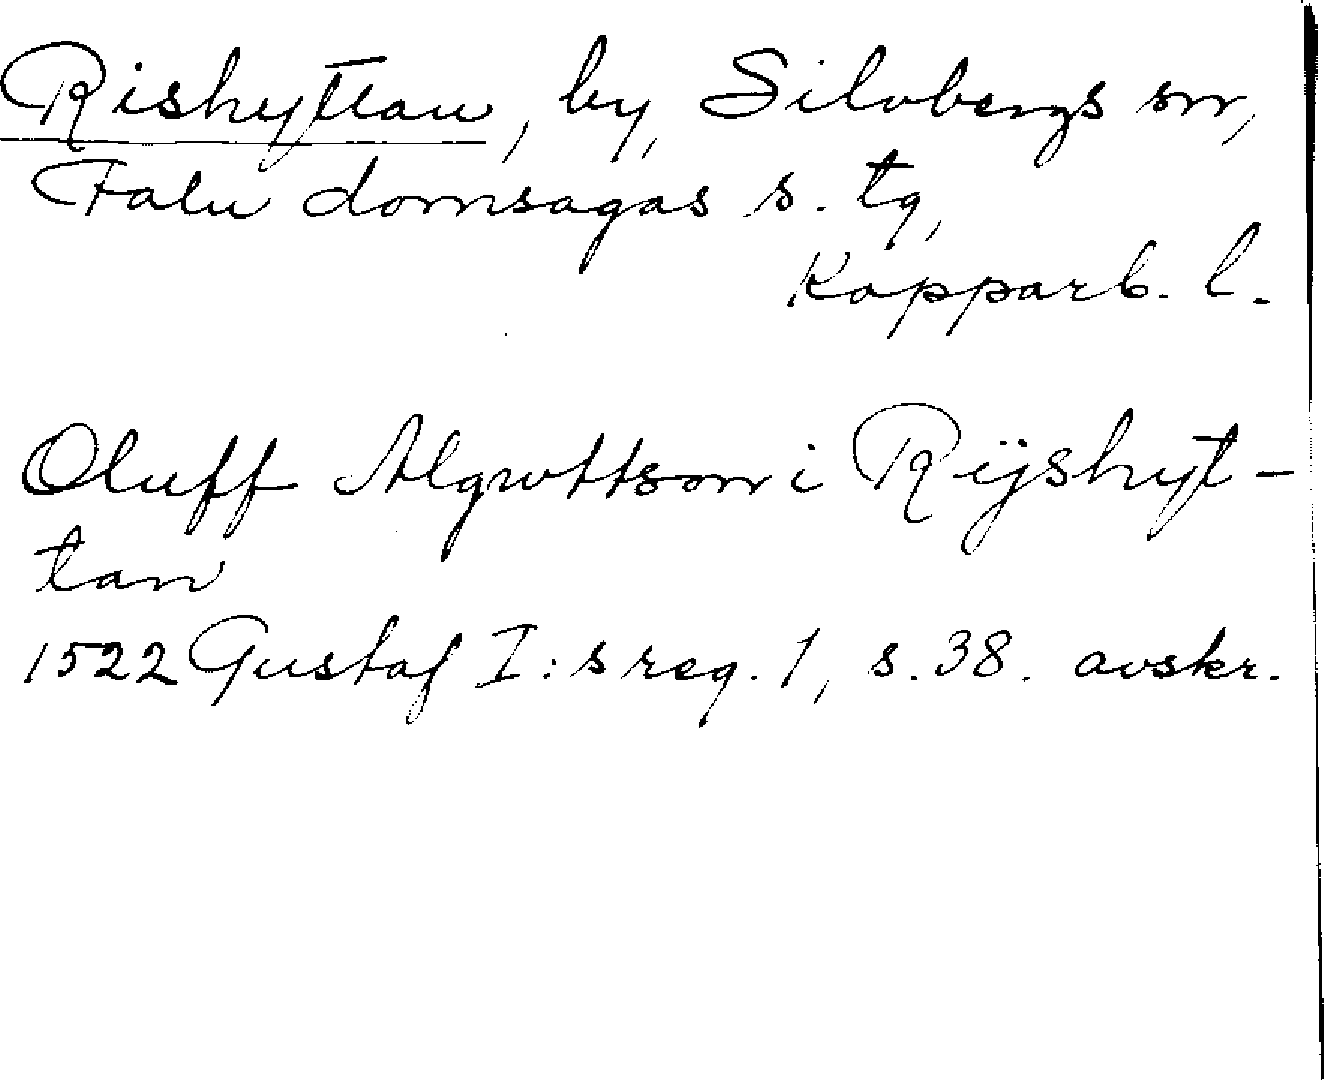 Rishyttan, by, Silvbergs sn,
Falu domsagas s. tg,
Kopparb. l.
Oluff Algvttson i Rijshyt-
tan
1522 Gustaf I:s reg. 1, s. 38. avskr.